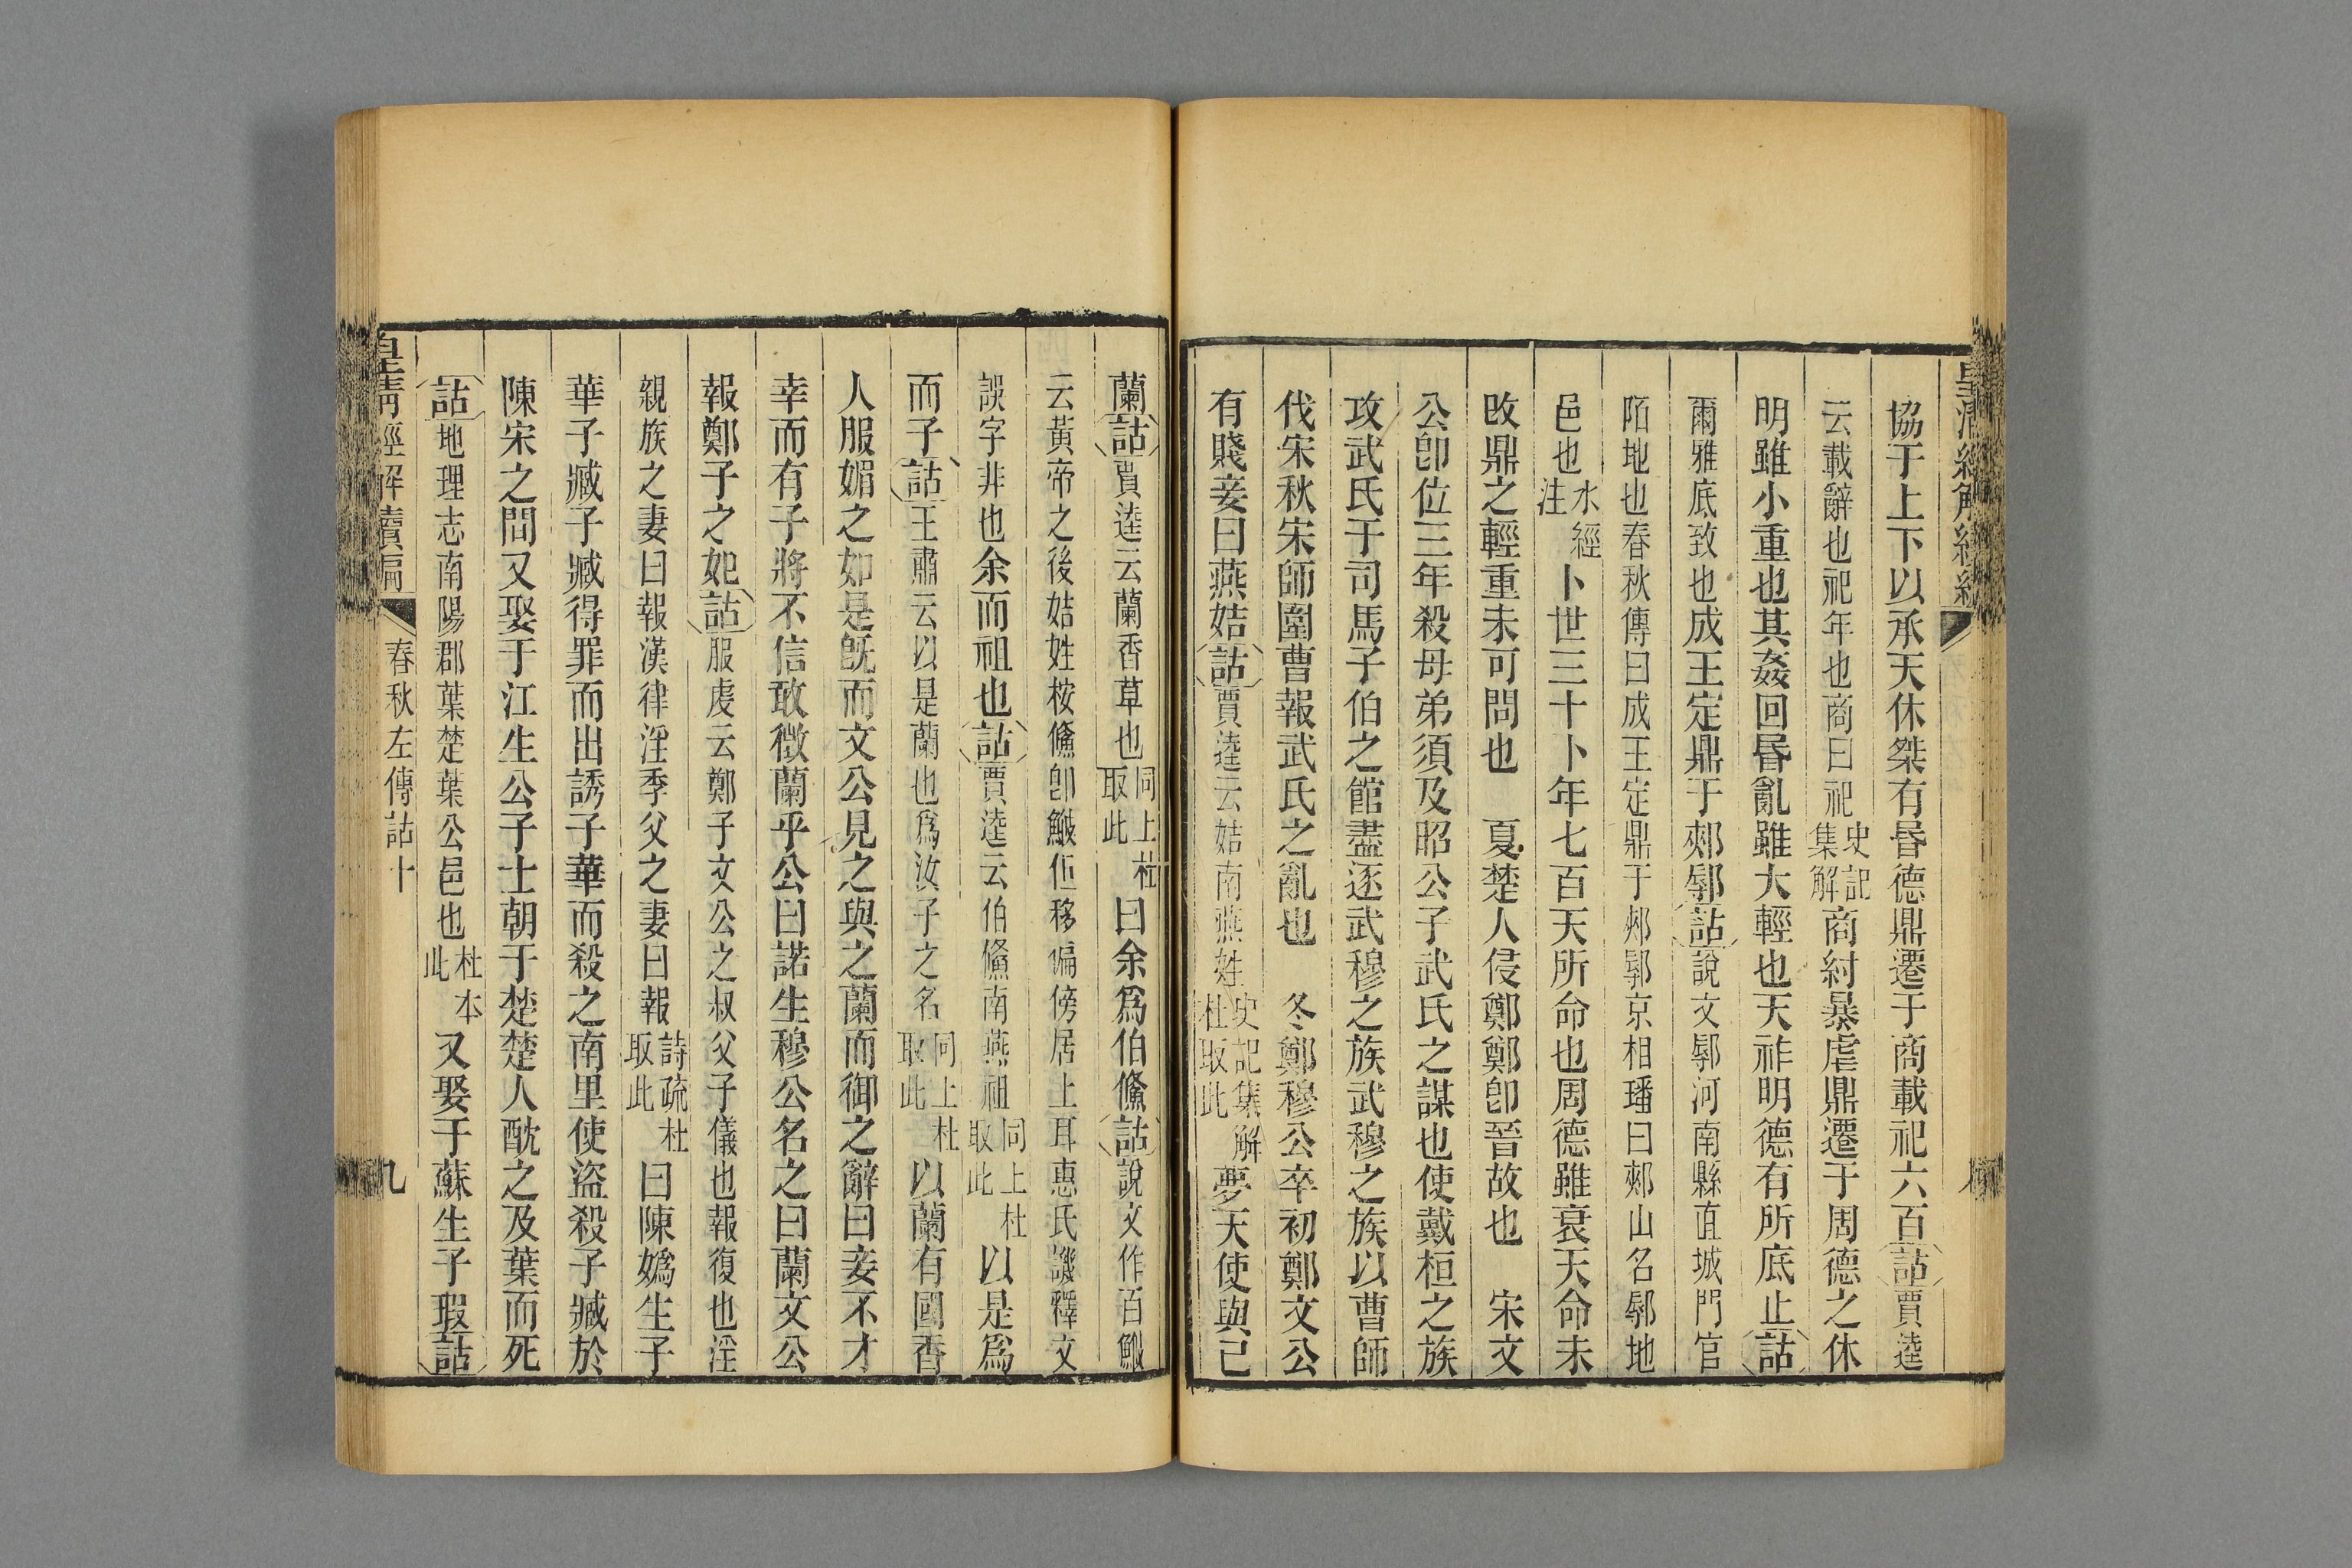 協于上下以承天休桀有昬德鼎遷于商載祀六百詁賈逵
云載辭也祀年也商曰祀史記集解商紂暴虐鼎遷于周德之休
明雖小重也其姦回昬亂雖大輕也天祚明德有所底止詁
爾雅底致也成王定鼎于郟鄏詁說文鄏河南縣直城門官
陌地也春秋傳曰成王定鼎于郟鄏京相璠曰郟山名鄏地
邑也水經注卜世三十卜年七百天所命也周德雖衰天命未
改鼎之輕重未可問也　夏楚人侵鄭鄭卽晉故也　宋文
公卽位三年殺母弟須及昭公子武氏之謀也使戴桓之族
攻武氏于司馬子伯之館盡逐武穆之族武穆之族以曹師
伐宋秋宋師圍曹報武氏之亂也　冬鄭穆公卒初鄭文公
有賤妾曰燕姞詁賈逵云姞南燕姓史記集解杜取此夢天使與己
蘭詁賈逵云蘭香草也同上杜取此曰余爲伯鯈詁說文作百鮍
云黃帝之後姞姓桉鯈卽鮍但移偏傍居上耳惠氏譏釋文
誤字非也余而祖也詁賈逵云伯鯈南燕祖同上杜取此以是爲
而子詁王肅云以是蘭也爲汝子之名同上杜取此以蘭有國香
人服媚之如是旣而文公見之與之蘭而御之辭曰妾不才
幸而有子將不信敢徵蘭乎公曰諾生穆公名之曰蘭文公
報鄭子之妃詁服虔云鄭子文公之叔父子儀也報復也淫
親族之妻曰報漢律淫季父之妻曰報詩疏杜取此曰陳嬀生子
華子臧子臧得罪而出誘子華而殺之南里使盜殺子臧於
陳宋之間又娶于江生公子士朝于楚楚人酖之及葉而死
詁地理志南陽郡葉楚葉公邑也杜本此又娶于蘇生子瑕詁
皇淸經解續編　春秋左傳詁十　九